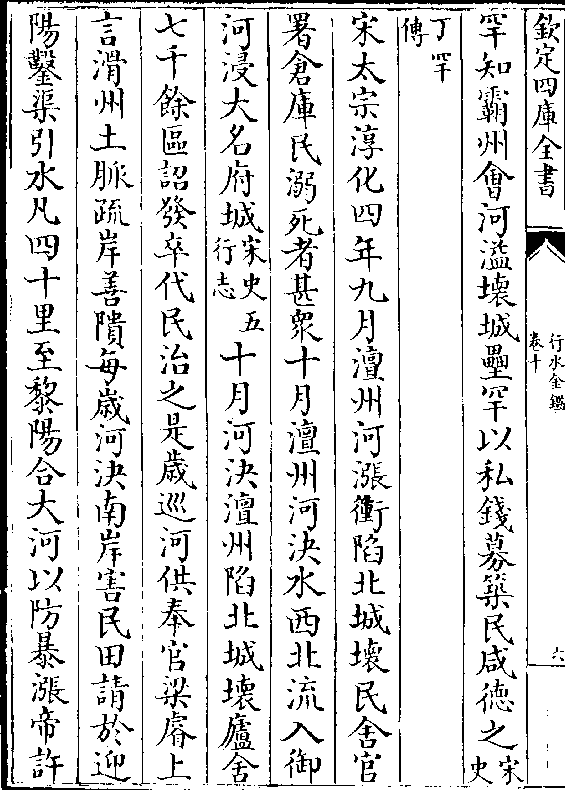 欽定四庫全書
行水金鑑
卷十
六
罕知霸州會河溢壞城壘罕以私錢募築民咸德之宋史
丁罕傳
宋太宗淳化四年九月澶州河漲衝陷北城壞民舍官
署倉庫民溺死者甚衆十月澶州河決水西北流入御
河浸大名府城宋史五行志十月河決澶州陷北城壞廬舍
七千餘區詔發卒代民治之是歲巡河供奉官梁睿上
言滑州土脈疏岸善隤每歲河決南岸害民田請於迎
陽鑿渠引水凡四十里至黎陽合大河以防暴漲帝許